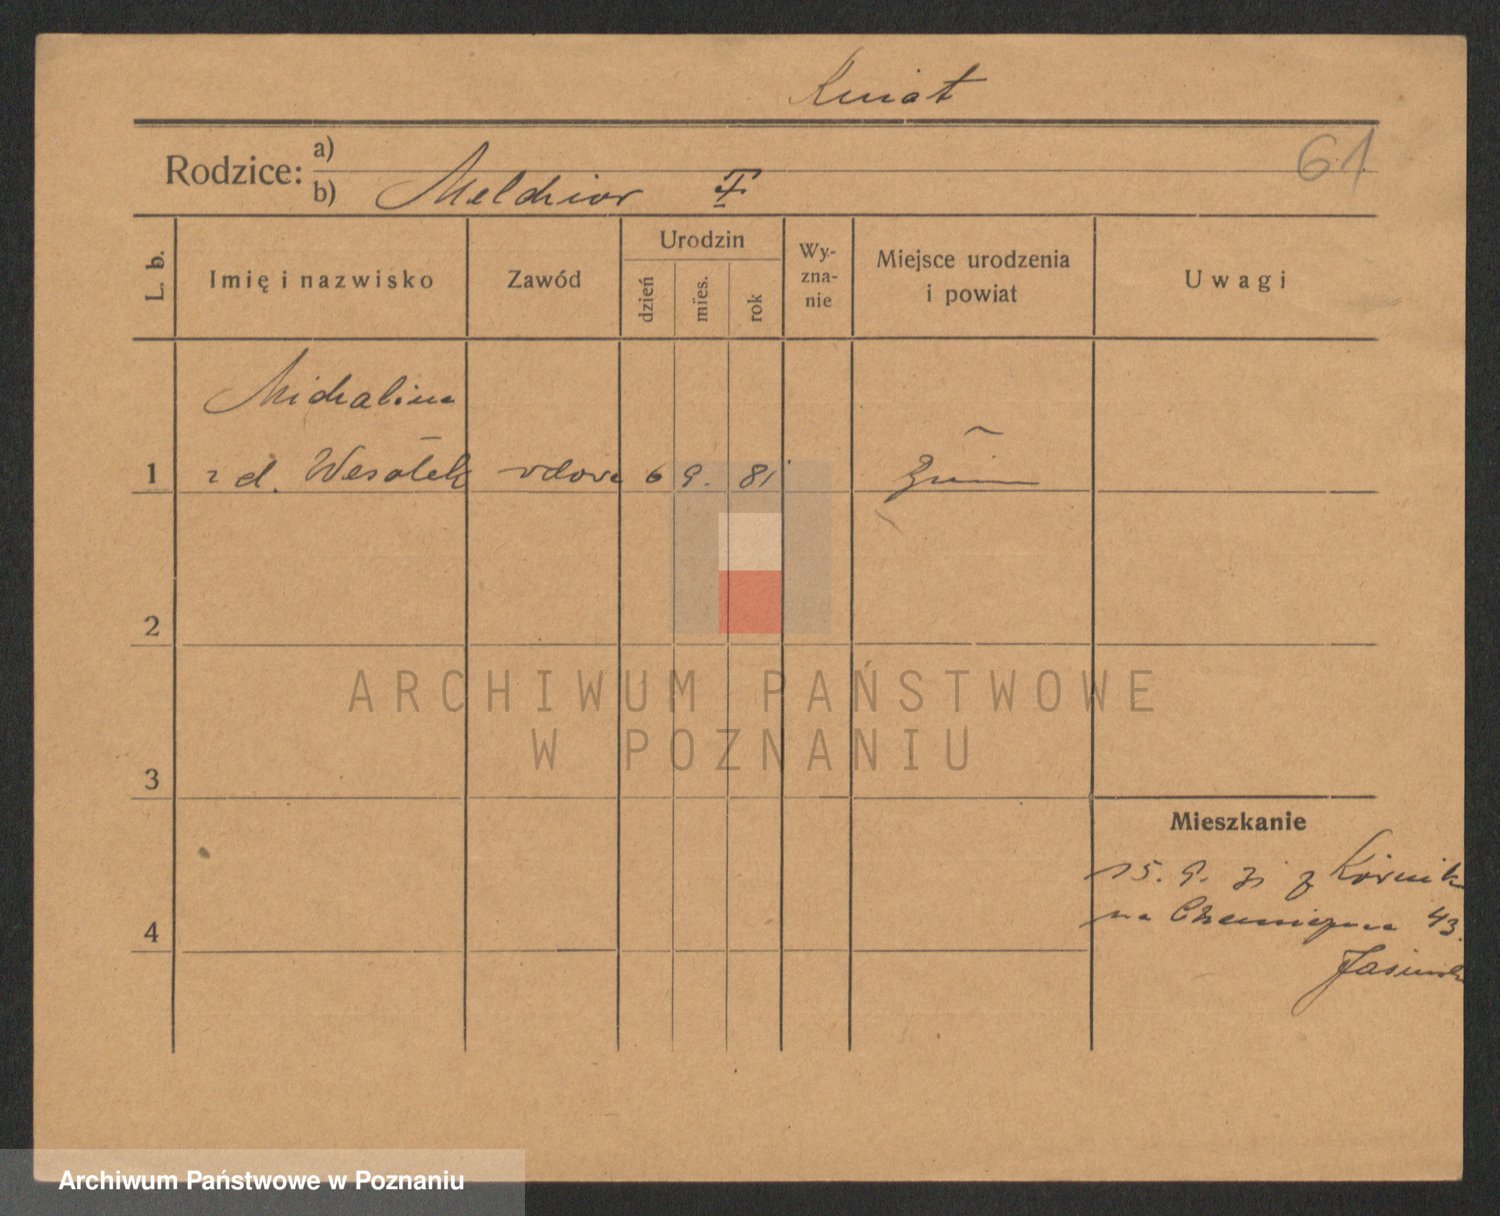 Kwiat
Rodzice: a)
b) Melchior †
61
L. b.
Imię i nazwisko
Zawód
Urodzin
dzień
mies.
rok
Wy-
zna-
nie
Miejsce urodzenia
i powiat
Uwagi
Michalina
1 z d. Wesołek wdowa 6 9. 81
2
3
4
Mieszkanie
15. 9. z Kórnik
na 43.
ARCHIWUM PAŃSTWOWE
W POZNANIU
Archiwum Państwowe w Poznaniu